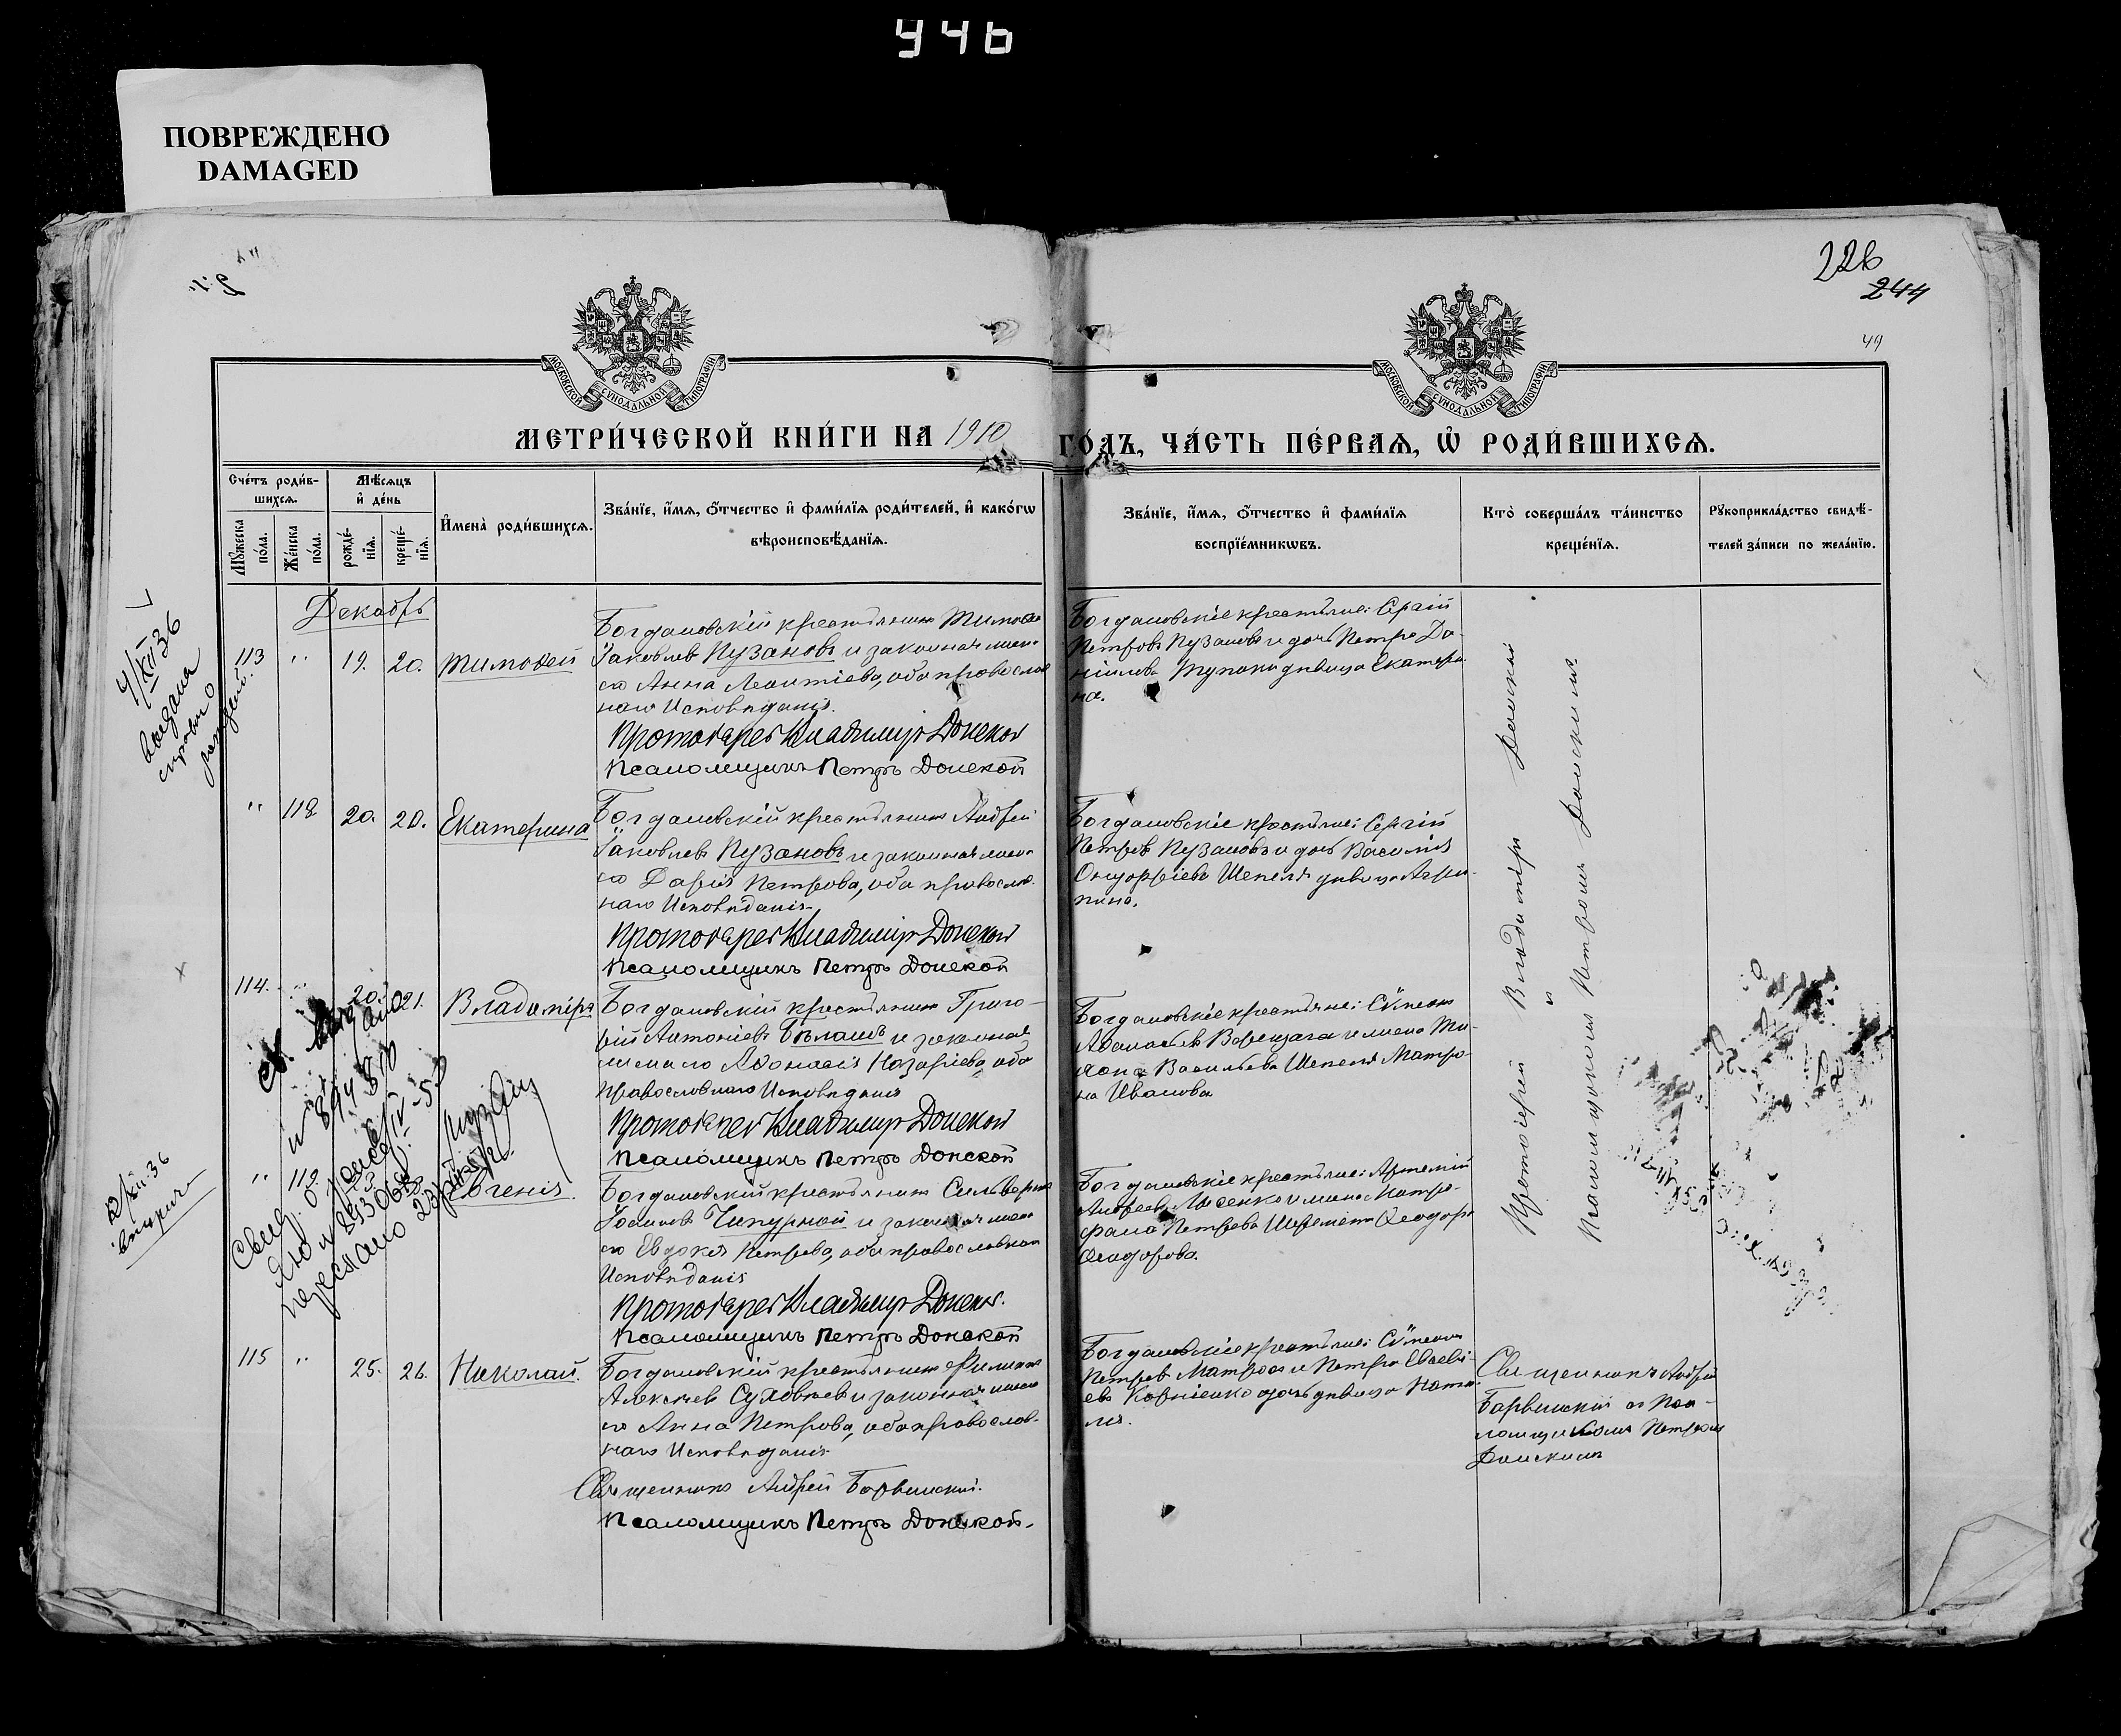 946
ПОВРЕЖДЕНО
DAMAGED
226
244
49
МОСКОВСКОЙ СѴНОДАЛЬНОЙ ТИПОГРАФІИ
МОСКОВСКОЙ СѴНОДАЛЬНОЙ ТИПОГРАФІИ
МЕТРИ́ЧЕСКОЙ КНИ́ГИ НА 1910 ГО́ДЪ, ЧА́СТЬ ПЕ́РВАѦ, Ѡ РОДИ́ВШИХСѦ.
Сче́тъ роди́в-
шихсѧ.
Мꙋ́жеска по́ла.
Же́нска по́ла.
Мѣ́сѧцъ
и҆ де́нь
рожде́-
нїѧ.
креще́-
нїѧ.
И҆мена̀ роди́вшихсѧ.
Зва́нїе, и҆́мѧ, ѻ҆́тчество и҆ фами́лїѧ роди́телей, и҆ како́гѡ
вѣроисповѣ́данїѧ.
Зва́нїе, и҆́мѧ, ѻ҆́тчество и҆ фами́лїѧ
воспрїе́мникѡвъ.
Кто̀ соверша́лъ та́инство
креще́нїѧ.
Рꙋкоприкла́дство свидѣ́-
телей за́писи по жела́нїю.
Декабрь
4/XII 36
выдана
справка о
рожден.
113 " 19. 20. Тимофей
Богдановскій крестьянинъ Тимофей
Іаковлевъ Пузановъ и законная жена
его Анна Леонтіева, оба православ
наго Исповѣданія.
Протоіерей Владимір Донской
Псаломщикъ Петръ Донской
Богдановскіе крестьяне: Сергій
Петровъ Пузановъ и дочь Петра Да-
ніилова девица Екатери-
на.
" 118 20. 20. Екатерина
Богдановскій крестьянинъ Андрей
Іаковлевъ Пузановъ и законная жена
его Дарія Петрова, оба православ.
наго Исповѣданія.
Протоіерей Владимір Донской
Псаломщикъ Петръ Донской
Богдановскіе крестьяне: Сергій
Петровъ Пузановъ и дочь Василія
Онуфріева Шепеля дѣвица Агри-
пина.
114. " 20. 21. Владиміръ
Богдановскій крестьянинъ Григо-
рій Антоніевъ Бѣлашъ и законная
жена его Афанасія Назаріева, оба
православнаго Исповѣданія
Протоіерей Владимір Донской
Псаломщикъ Петръ Донской
Богдановскіе крестьяне: Сѵмеонъ
и жена Ти-
хона Васильева Шепеля Матро-
на Иванова
" 119 Евгенія.
Богдановскій крестьянинъ Сильвестръ
Іоанновъ Чипурной и законная жена
его Евдокія Петрова, оба православнаго
Исповѣданія
Протоіерей Владимір Донской.
Псаломщикъ Петръ Донской
Богдановскіе крестьяне: Артемій
Андреевъ Лисенко и жена Митро-
фана Петрова Шеремета Ѳеодора
Ѳеодорова.
115 " 25. 26. Николай.
Богдановскій крестьянинъ Филиппъ
Алексѣевъ Суховѣевъ и законная жена
его Анна Петрова, оба православ-
наго Исповѣданія.
Священникъ Андрей Борвинскій.
Псаломщикъ Петръ Донской.
Богдановскіе крестьяне: Сѵмеонъ
Петровъ Матросъ и Петра Евсеві-
ева Корніенко дочь дѣвица Ната-
лія.
Протоіерей Владиміръ Донской
и
Псаломщикомъ Петромъ Донскимъ
Священникъ Андрей
Борвинскій съ Пса-
ломщикомъ Петромъ
Донскимъ